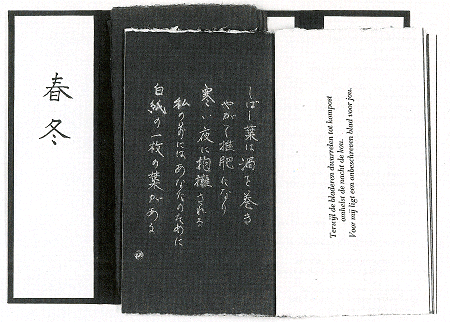 春冬
しばし葉は渦を巻き
やがて堆肥になり
寒い夜に抱擁される
私の前にはあなたのために
白紙の一枚の葉がある
Terwijl de bladeren dwarrelen tot kompost
omhelst de nacht de kou.
Voor mij ligt een onbeschreven blad voor jou.